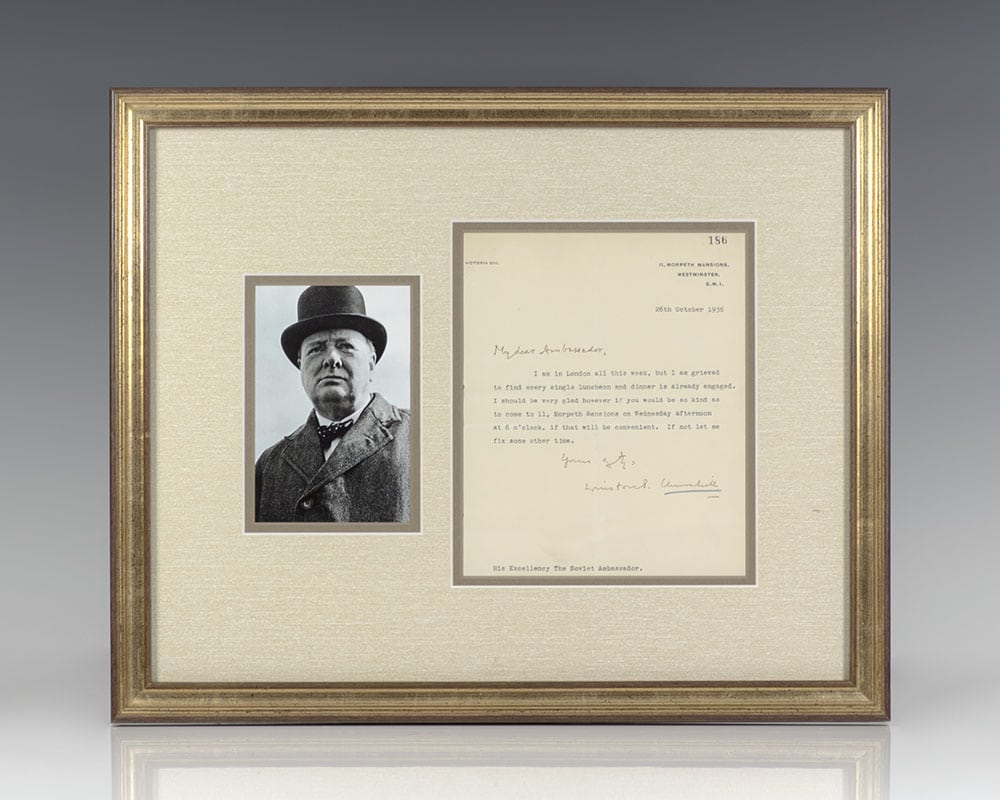 186
VICTORIA
11, MORPETH MANSIONS,
WESTMINSTER,
S.W.1.
26th October 1936
My dear Ambassador,
I am in London all this week, but I am grieved
to find every single luncheon and dinner is already engaged.
I should be very glad however if you would be so kind as
to come to 11, Morpeth Mansions on Wednesday afternoon
at 6 o'clock, if that will be convenient. If not let me
fix some other time.
Yours
Winston S. Churchill
His Excellency The Soviet Ambassador.